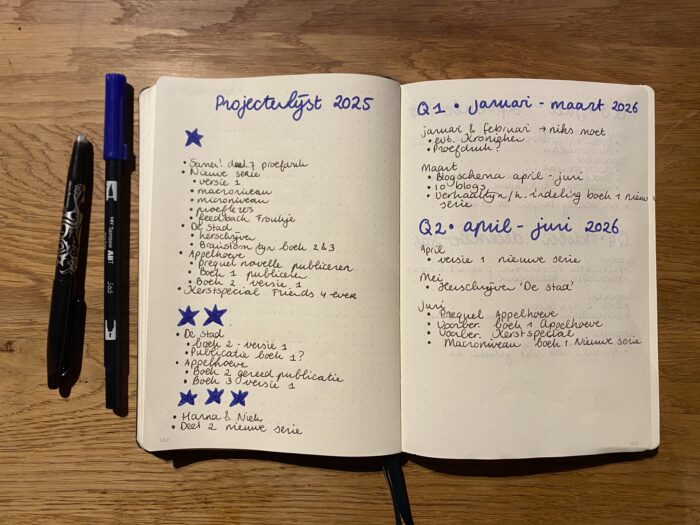 Projectenlijst 2025
• Samen! deel 7 proefdruk
• Nieuwe serie
• versie 1
• macroniveau
• microniveau
• proeflezers
• feedback Froukje
• De stad
• herschrijven
• Brainstorm tijn boek 2 & 3
• Appelhoeve
• prequel novelle publiceren
• Boek 1 publiceren
• Boek 2 versie 1
• Kerstspecial Friends 4-ever
• De stad
• boek 2 - versie 1
• Publicatie boek 1?
• Appelhoeve
• Boek 2 gereed publicatie
• Boek 3 versie 1
• Hanna & Niek
• Deel 2 nieuwe serie
122
Q1 • januari - maart 2026
januari & februari → niks moet
• evt. Kronieken
• Proefdruk?
Maart
• Blogschema april - juni
• 10 blogs
• Verhaallijn/h. indeling boek 1 nieuwe
serie
Q2 • april - juni 2026
April
• versie 1 nieuwe serie
Mei
• Herschrijven 'De stad'
Juni
• Prequel Appelhoeve
• Voorber. boek 1 Appelhoeve
• Voorber. Kerstspecial
• Macroniveau boek 1 Nieuwe serie
123
Tombow ABT
565